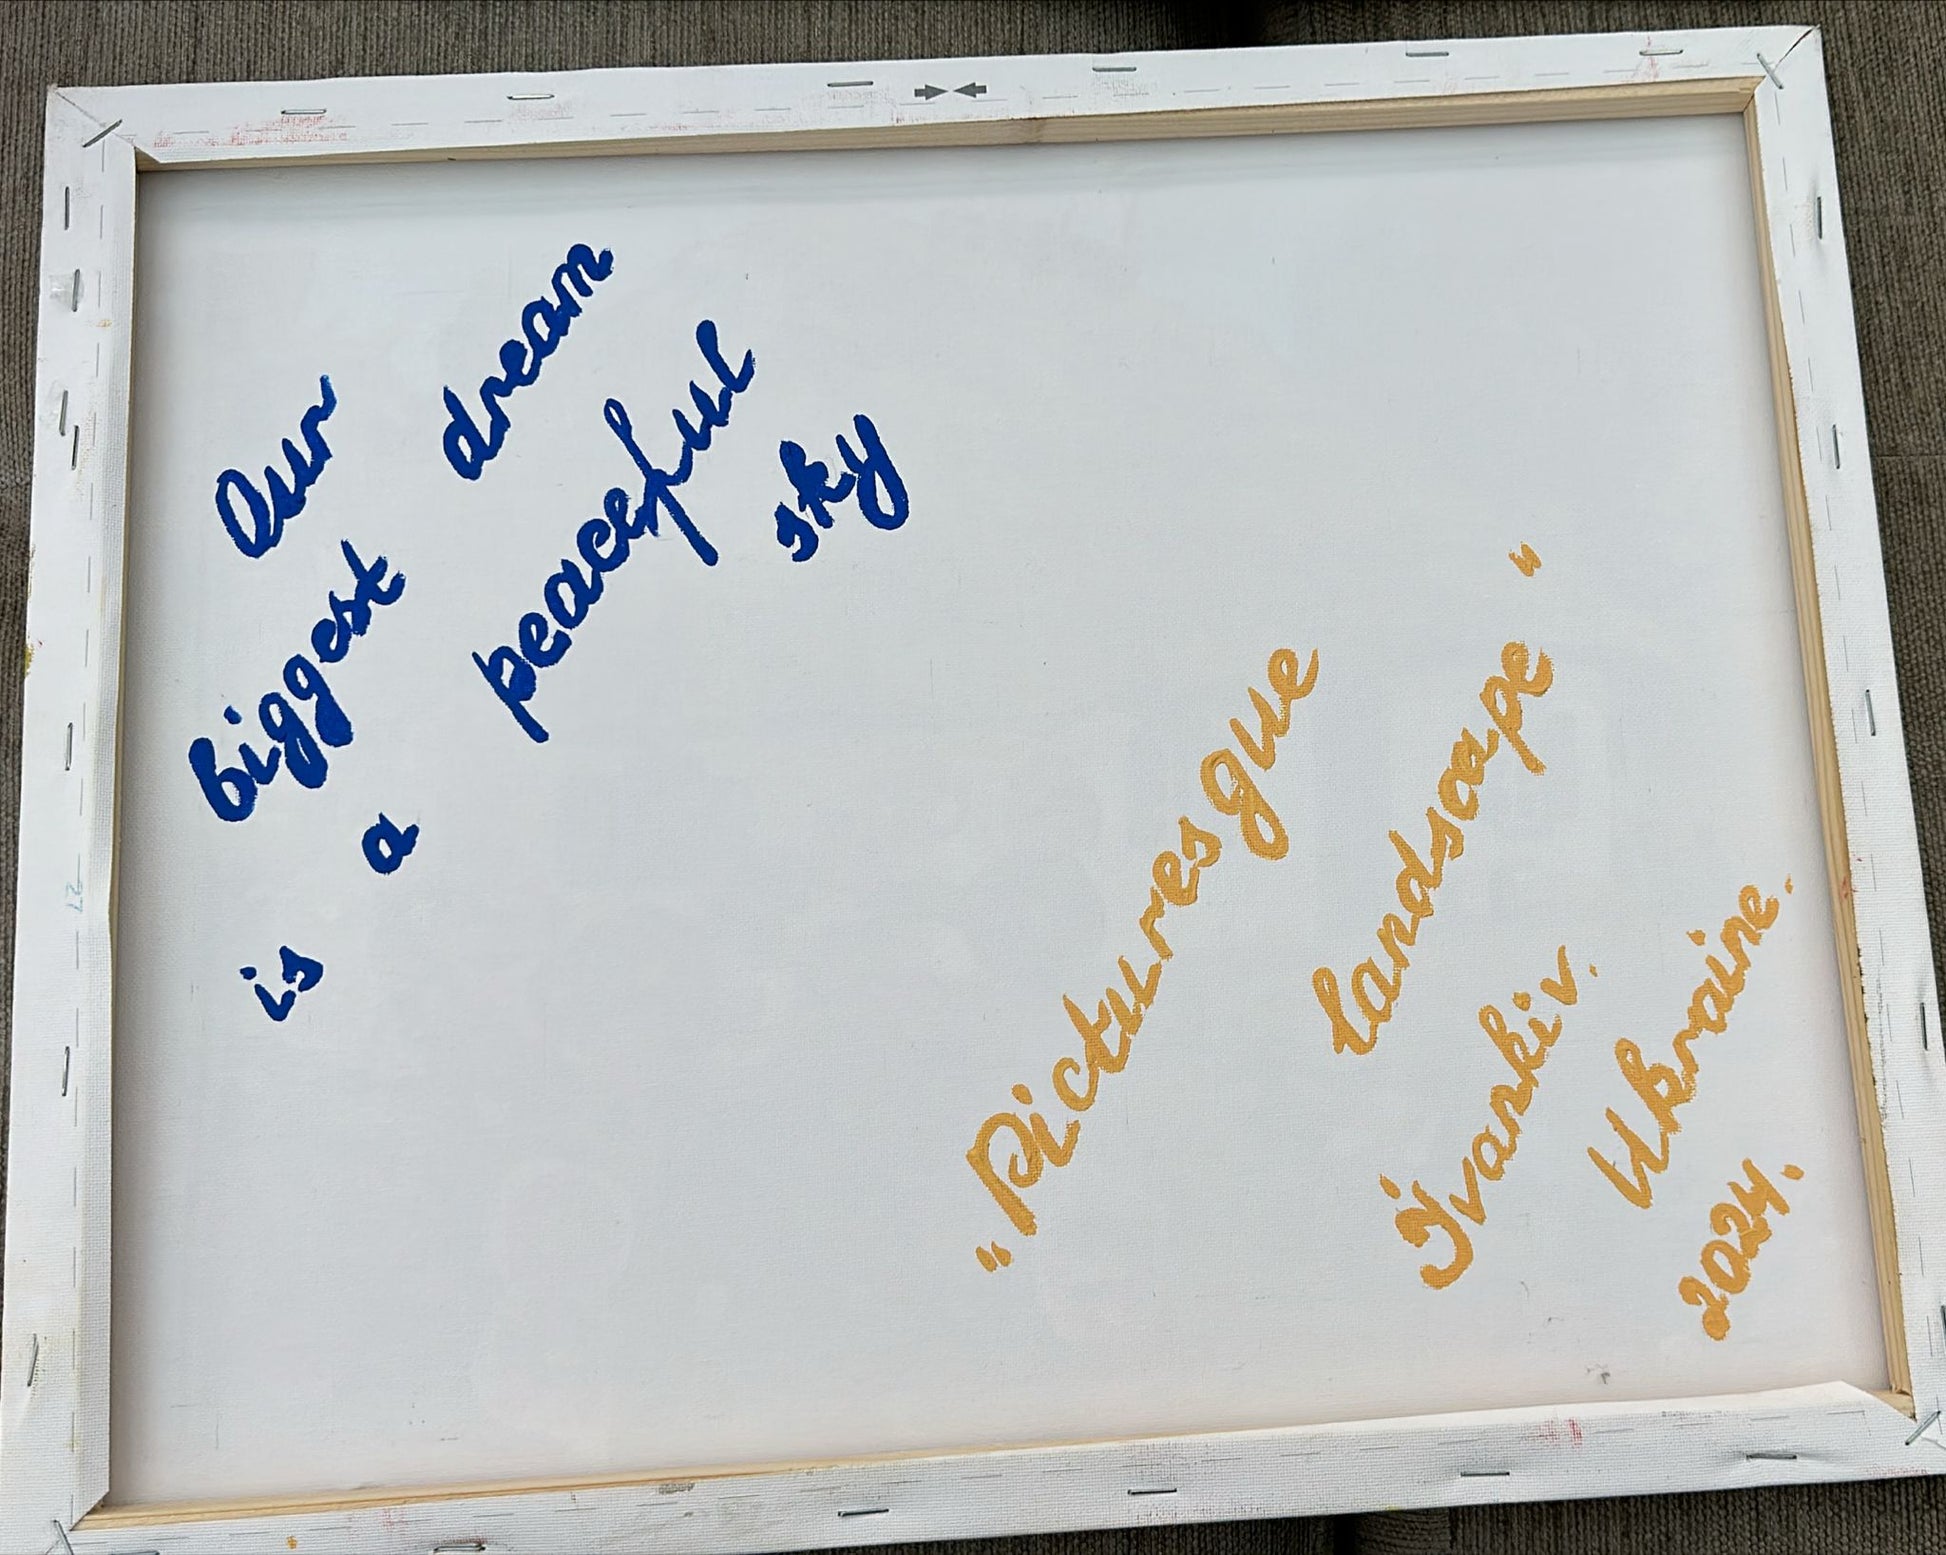 Our
biggest dream
is a peaceful
sky
"Picturesque
landsape"
Ivankiv.
Ukraine.
2024.
27